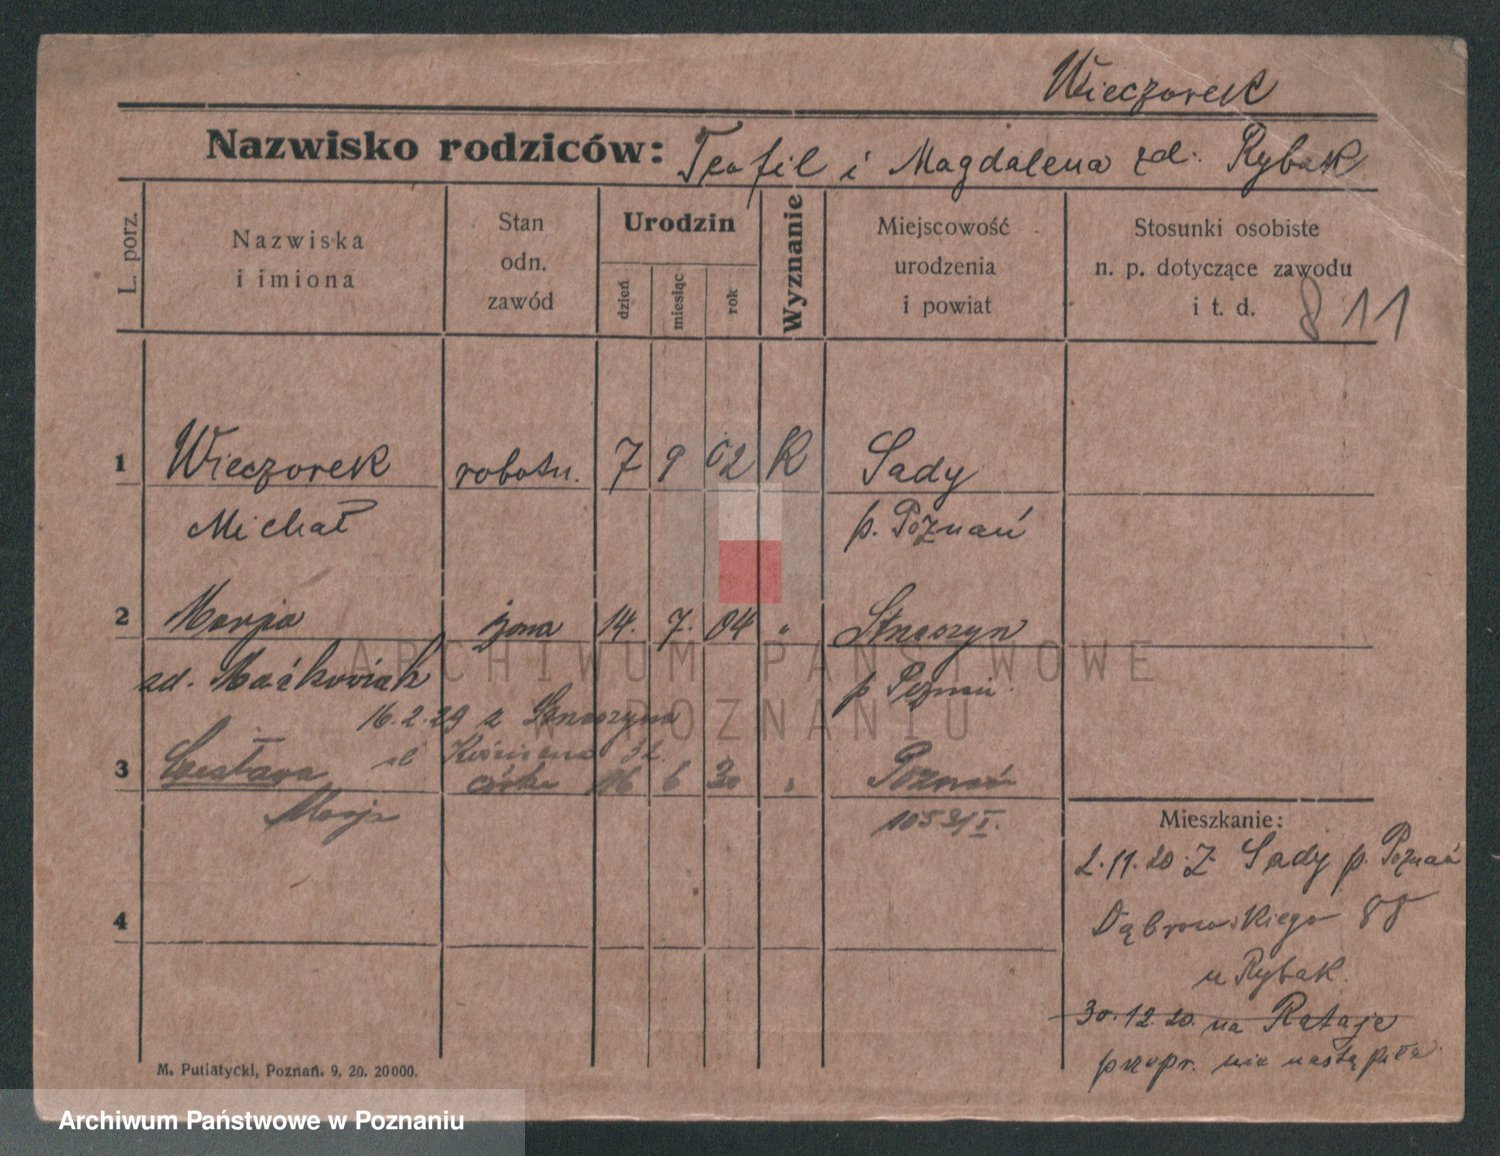 Wieczorek
Nazwisko rodziców: Teofil i Magdalena zd. Rybak
L. porz.
Nazwiska
i imiona
Stan
odn.
zawód
Urodzin
dzień
miesiąc
rok
Wyznanie
Miejscowość
urodzenia
i powiat
Stosunki osobiste
n. p. dotyczące zawodu
i t. d.
811
1 Wieczorek robotn. 7 9 02 K Sady
Michał p. Poznań
2 Marja żona 14. 7. 04 " Strzeszyn
zd. Maćkowiak p Poznań
16.2.29 z Strzeszyna
3 Czesława córka 16 6 30 " Poznań
Marja 1053/I.
Mieszkanie:
2.11.20. Z. Sady p. Poznań
Dąbrowskiego 88
u Rybak.
30.12.20. na Rataje
przepr. nie nastąpiła
4
M. Putiatycki, Poznań. 9. 20. 20000.
ARCHIWUM PAŃSTWOWE
W POZNANIU
Archiwum Państwowe w Poznaniu